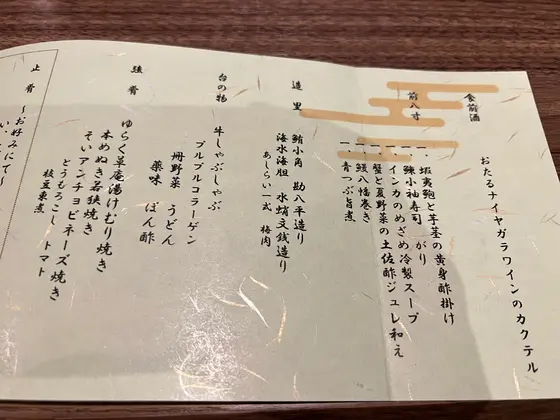 食前酒
おたるナイヤガラワインのカクテル
前八寸
一、蝦夷鮑と芋茎の黄身酢掛け
一、鰊小袖寿司 がり
一、インカのめざめ冷製スープ
一、蟹と夏野菜の土佐酢ジュレ和え
一、鰻八幡巻き
一、青つぶ旨煮
造里
鮪小角 勘八平造り
海水海胆 水蛸文銭造り
あしらい一式 梅肉
台の物
牛しゃぶしゃぶ
プルプルコラーゲン
冊野菜 うどん
薬味 ぽん酢
強肴
ゆらく草庵湯けむり焼き
本めぬき若狭焼き
そいアンチョビネーズ焼き
とうもろこし トマト
枝豆東煮
止肴
～お好みにて～